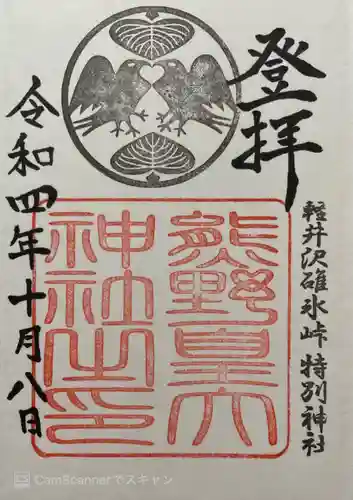 登拝
軽井沢碓氷峠 特別神社
熊野皇大
神社之印
令和四年十月八日
CamScannerでスキャン